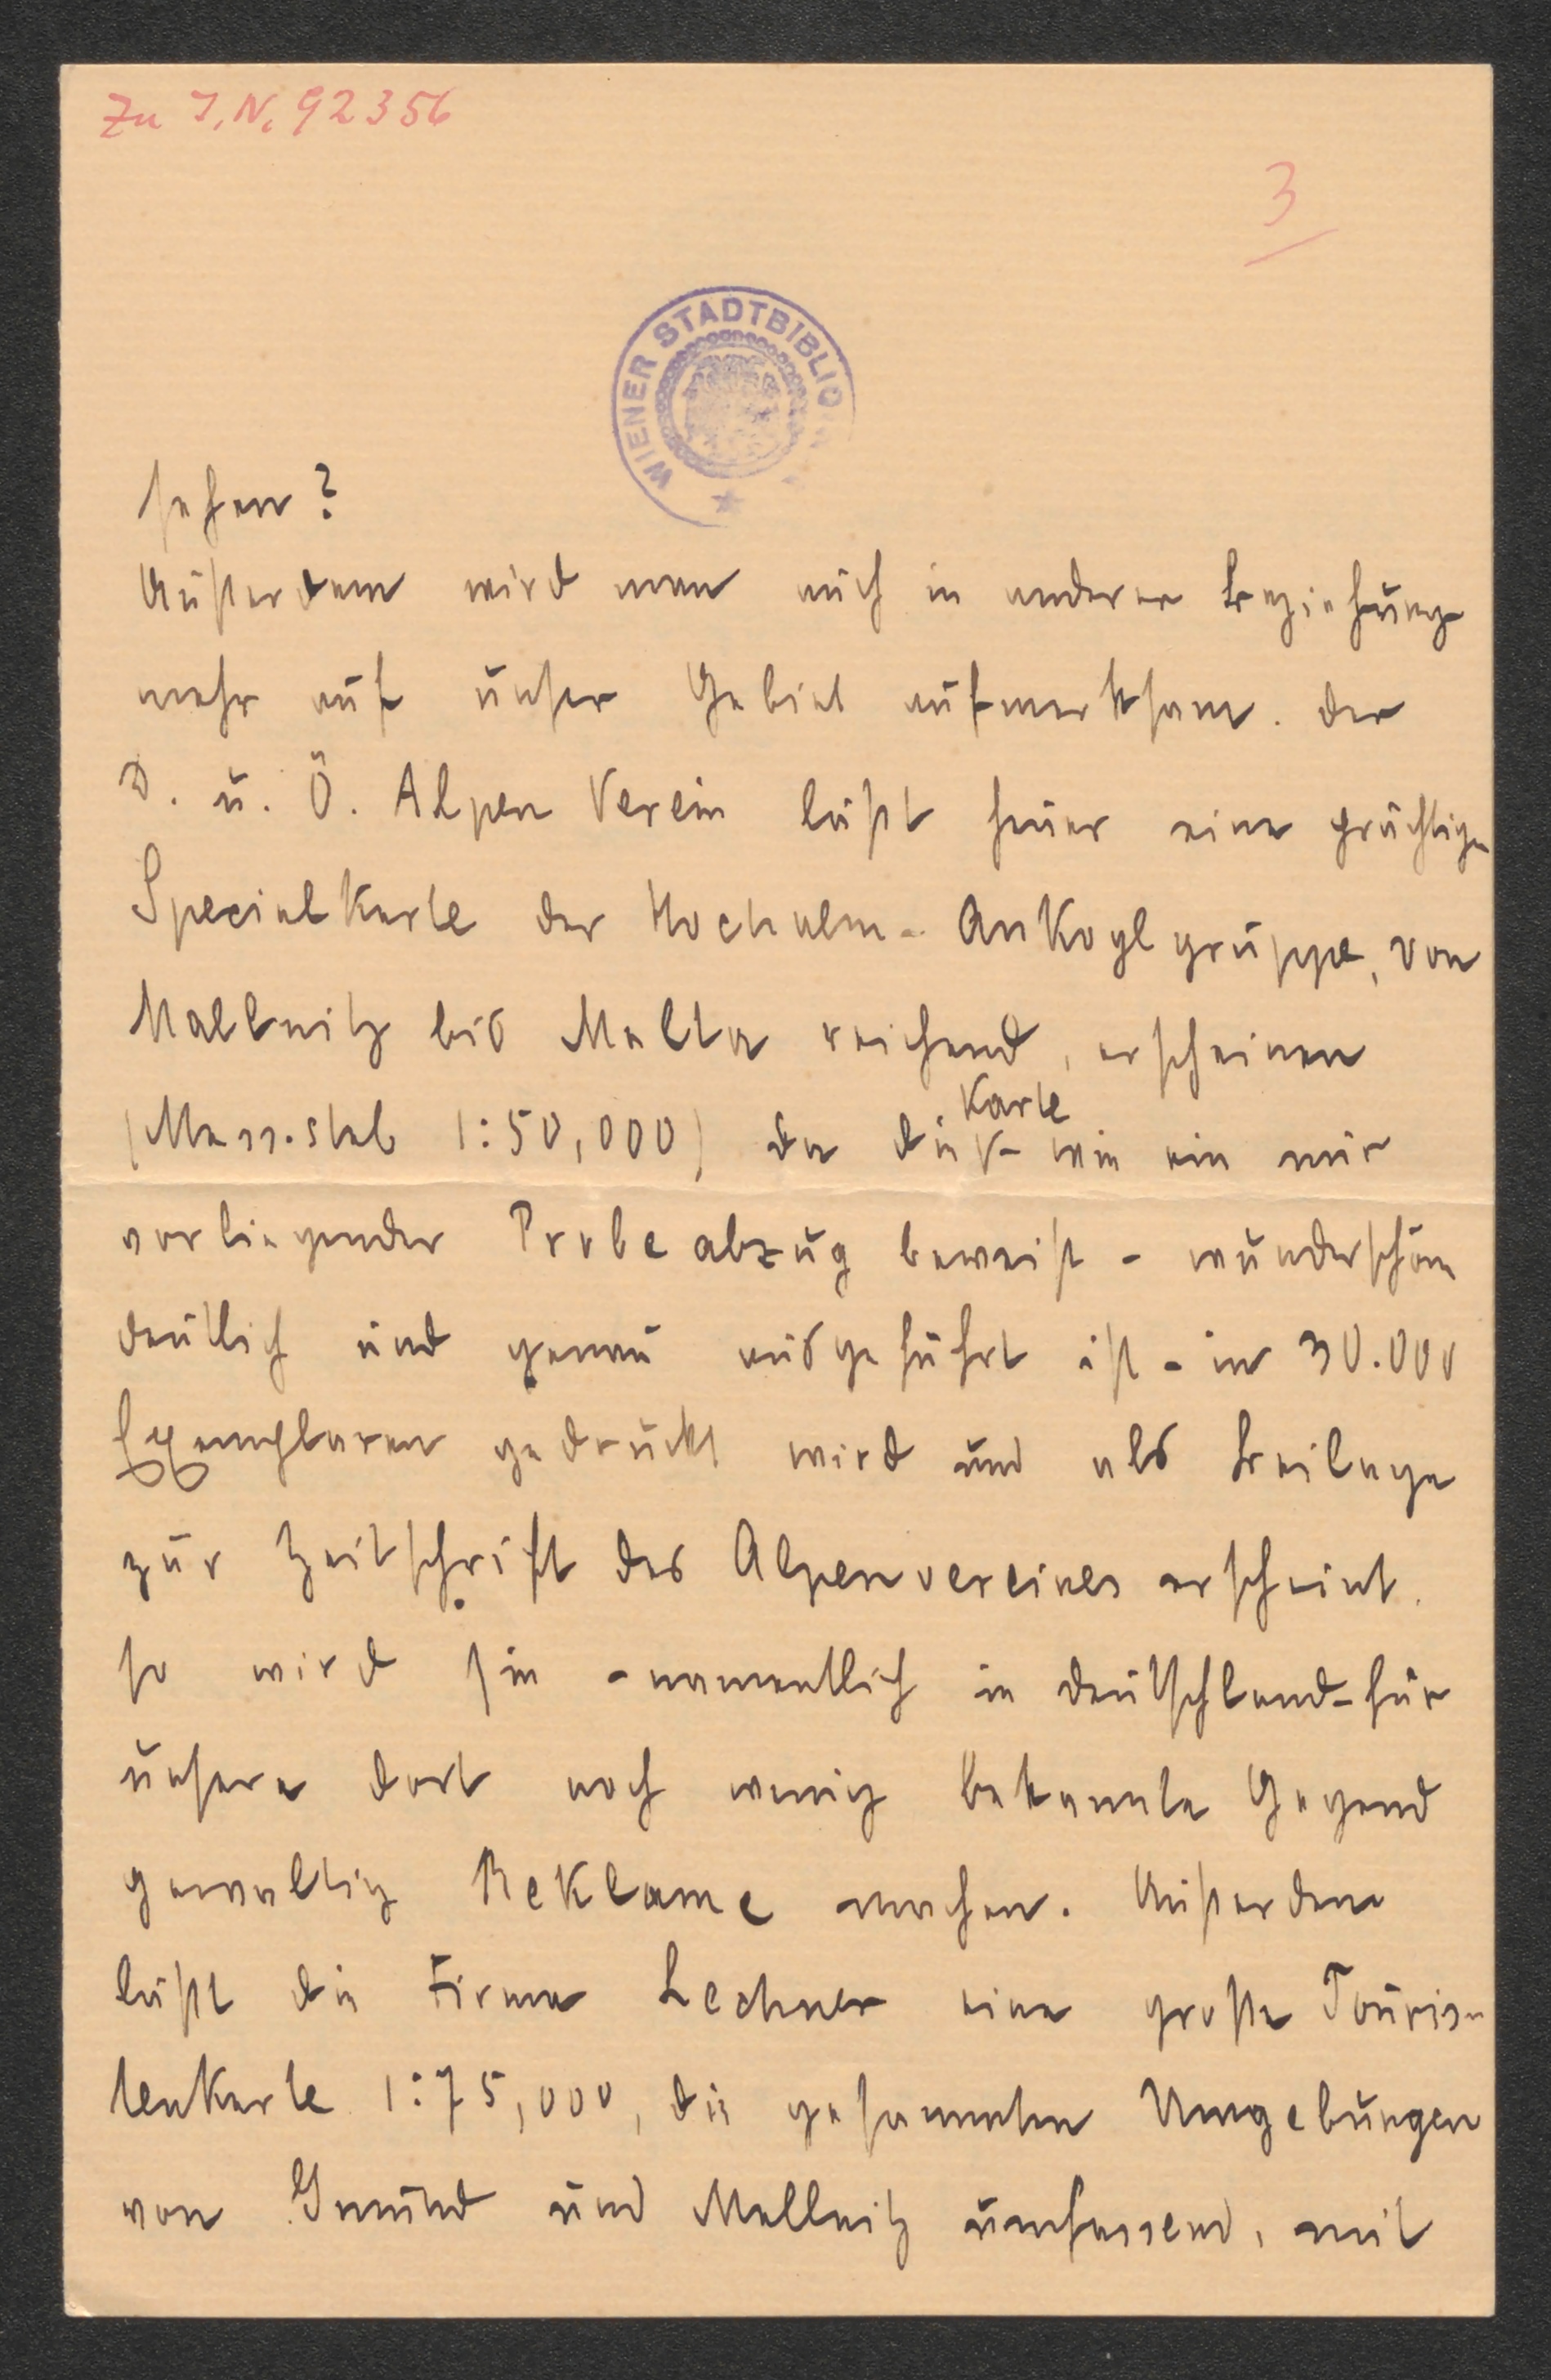 Zu I.N. 92356
3
WIENER STADTBIBLIO
sehen?
Außerdem wird man auch in anderer Beziehung
mehr auf unser Gebiet aufmerksam. Der
D. u. Ö. Alpen Verein läßt heuer eine prächtige
Specialkarte der Hochalm-Ankoglgruppe, von
Mallnitz bis Malta reichend, erscheinen
(Massstab 1:50,000) da die Karte – wie ein mir
vorliegender Probeabzug beweist – wunderschön
deutlich und genau ausgeführt ist – in 30.000
Exemplaren gedruckt wird und als Beilage
zur Zeitschrift des Alpenvereines erscheint.
so wird sie – namentlich in Deutschland – für
unsere dort noch wenig bekannte Gegend
gewaltig Reklame machen. Außerdem
läßt die Firma Lechner eine große Touris-
tenkarte 1:75,000, die gesammten Umgebungen
von Gmünd und Mallnitz umfassend, mit